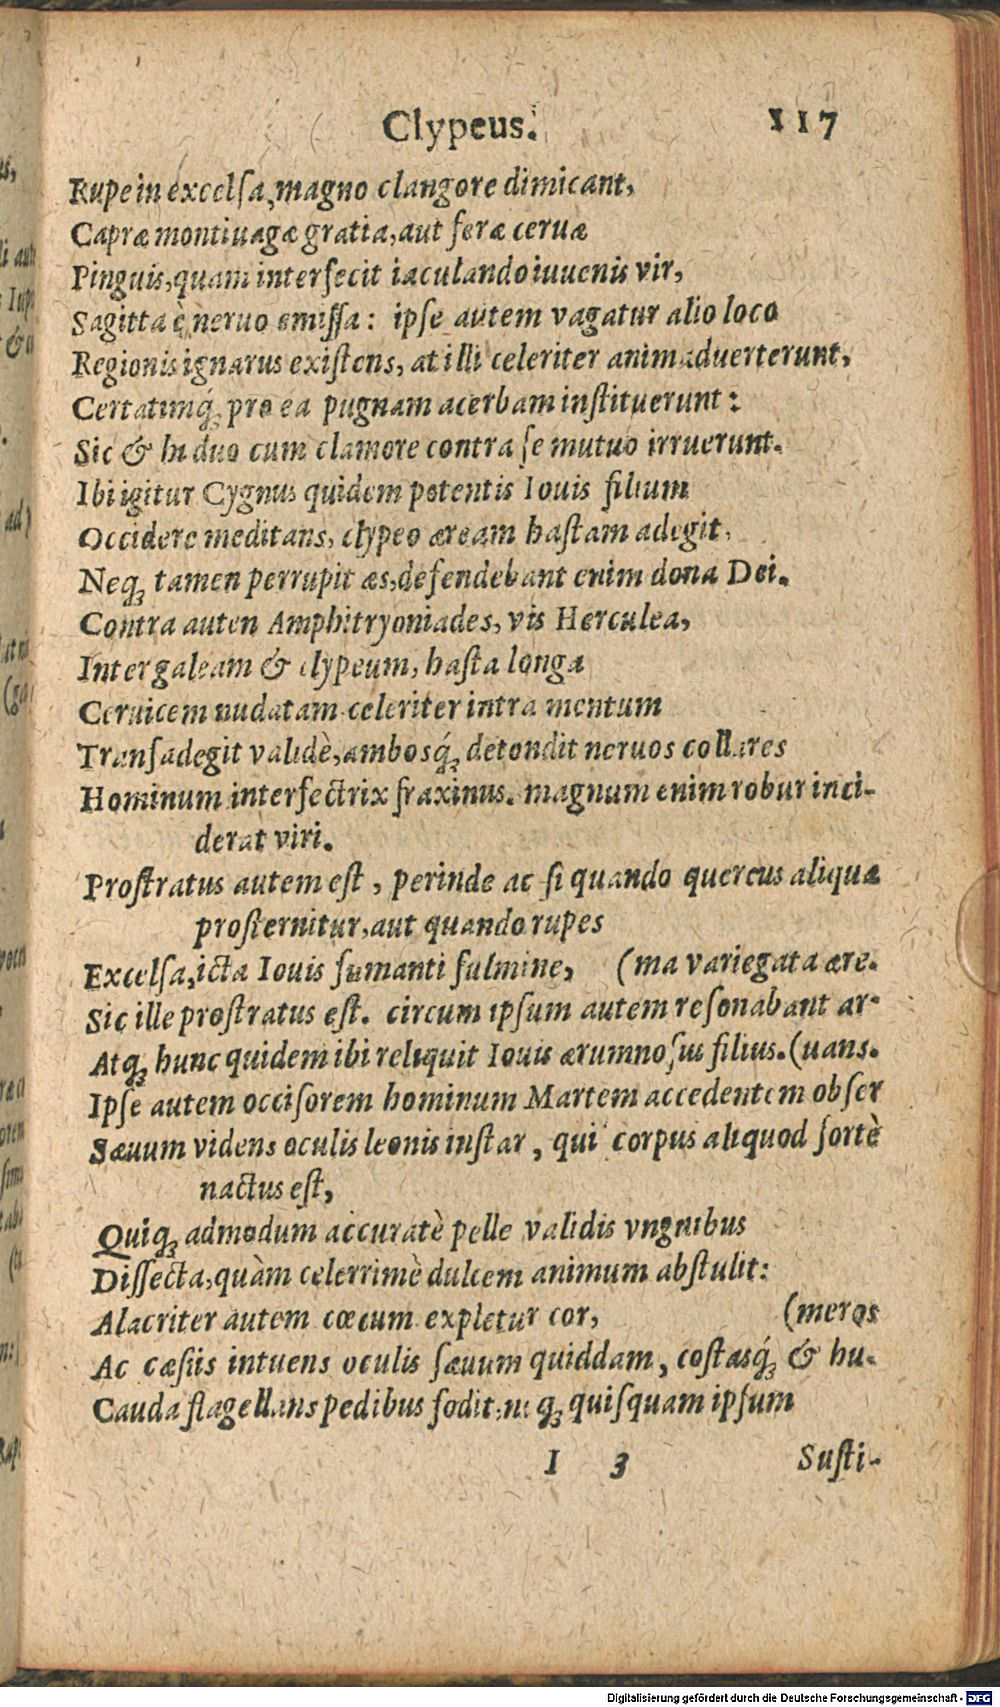 Clypeus. 117
Rupe in excelsa, magno clangore dimicant,
Capræ montiuagæ gratia, aut feræ ceruæ
Pinguis, quam interfecit iaculando iuuenis vir,
Sagitta è neruo emissa: ipse autem vagatur alio loco
Regionis ignarus existens, at illi celeriter animaduerterunt,
Certatimq́; pro ea pugnam acerbam instituerunt:
Sic & hi duo cum clamore contra se mutuo irruerunt.
Ibi igitur Cygnus quidem potentis Iouis filium
Occidere meditans, clypeo æream hastam adegit,
Neq; tamen perrupit æs, defendebant enim dona Dei.
Contra auten Amphitryoniades, vis Herculea,
Inter galeam & clypeum, hasta longa
Ceruicem nudatam celeriter intra mentum
Transadegit validè, ambosq́; detondit neruos collares
Hominum interfectrix fraxinus. magnum enim robur inci-
derat viri.
Prostratus autem est, perinde ac si quando quercus aliqua
prosternitur, aut quando rupes
Excelsa, icta Iouis fumanti fulmine, (ma variegata ære.
Sic ille prostratus est. circum ipsum autem resonabant ar-
Atq; hunc quidem ibi reliquit Iouis ærumnosus filius. (uans.
Ipse autem occisorem hominum Martem accedentem obser
Sæuum videns oculis leonis instar, qui corpus aliquod fortè
nactus est,
Quiq; admodum accuratè pelle validis vngnibus
Dissecta, quàm celerrimè dulcem animum abstulit:
Alacriter autem cœcum expletur cor, (meros
Ac cæsiis intuens oculis sæuum quiddam, costasq́; & hu-
Cauda flagellans pedibus fodit, neq; quisquam ipsum
I 3 Susti-
Digitalisierung gefördert durch die Deutsche Forschungsgemeinschaft - DFG